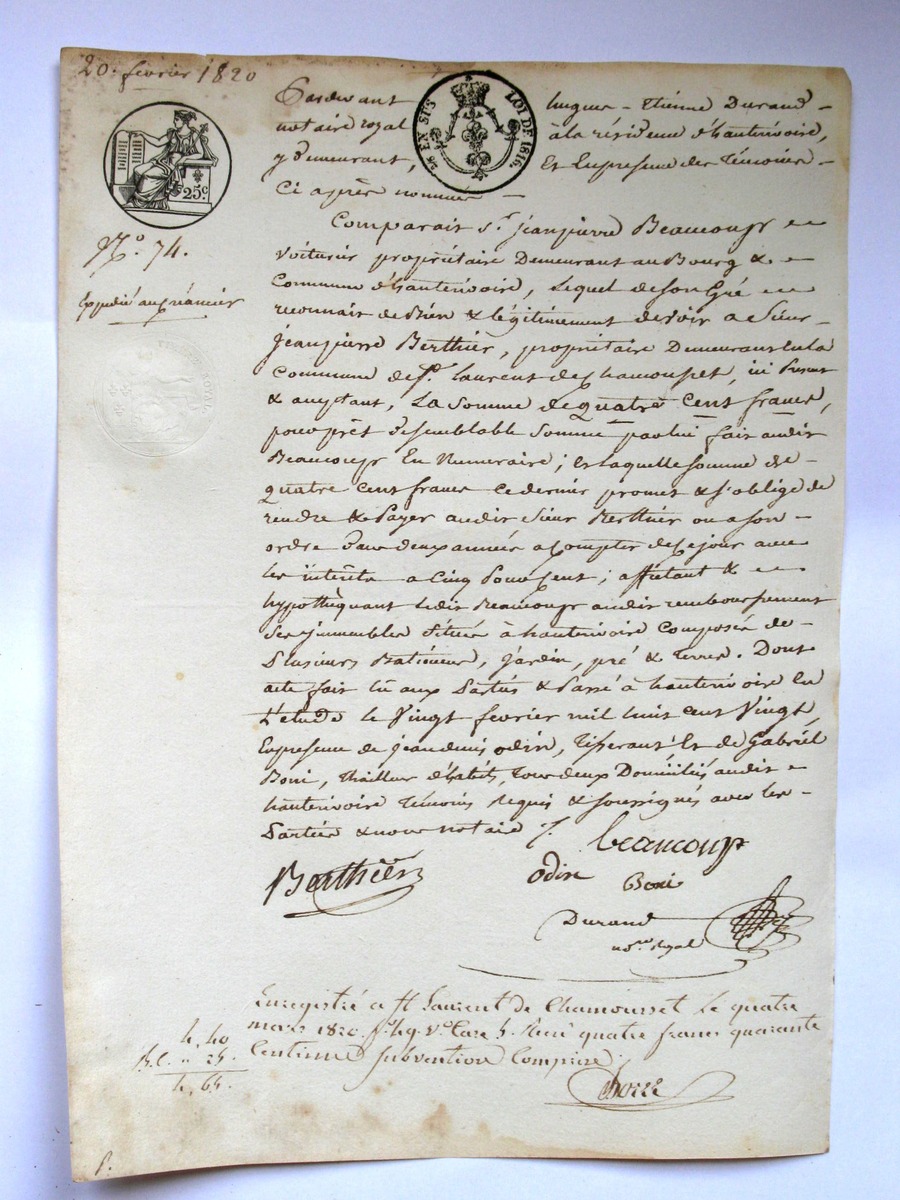 20. fevrier 1820
25.c
28 EN SUS LOI DE 1816.
Pardevant hugues - Etienne Durand -
notaire royal à la résidence d'hauterivoire,
y demeurant, et En presence des Témoins -
Ci après nommés -
N.° 74.
Expedié au créancier
Comparait S.r jeanpierre Beaucoup
Voiturier propriétaire Demeurant au Bourg &
Commune d'hauterivoire, Lequel de son Gré
reconnait de Bien & légitimement devoir a Sieur
jeanpierre Berthier, propriétaire Demeurant en la
Commune de St. Laurent de Chamousset, ici Present
& acceptant, La Somme de quatre Cent francs,
pour prêt de semblable Somme par lui fait audit
Beaucoup En Numeraire; et laquelle somme de
quatre Cent francs ce dernier promet & s'oblige de
rendre & Payer audit Sieur Berthier ou a son
ordre dans deux années a Compter de Ce jour avec
les intérêts a Cinq Pour Cent; affectant &
hypothèquant ledit Beaucoup audit remboursement
Ses immeubles Situés à hauterivoire Composés de
Plusieurs Batiments, jardin, pré & terres. Dont
acte fait lu aux Parties & Passé à hauterivoire En
l'étude le Vingt fevrier mil huit cent Vingt,
En presence de jean denis odin, Tisserant Et de Gabriël
Boni, Thailleur d'habits, tous deux Domiciliés audit
hauterivoire Témoins requis & soussignés avec les
Parties & nous notaire ./.
beaucoup
Berthier odin Boni
Durand
no.re Royal
Enregistré a St Laurent de Chamousset le quatre
mars 1820 f.° 49. V.° Case 5. Reçu quatre francs quarante
Centimes subvention Comprise.
4,40
25.
4,65.